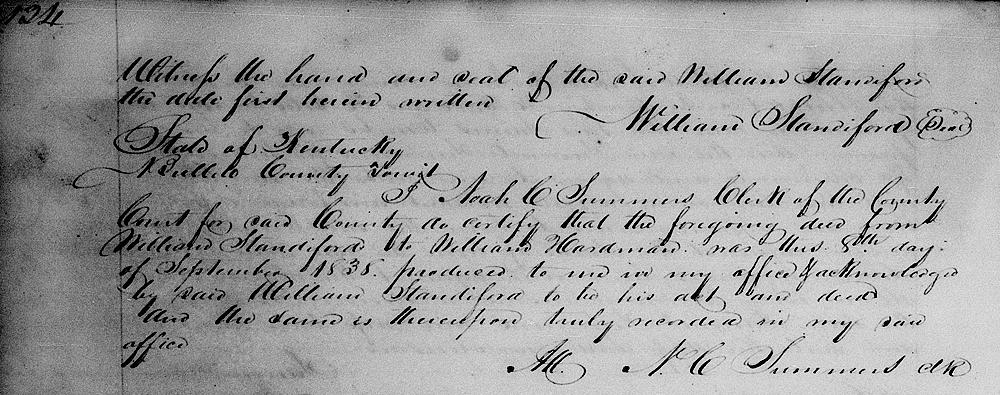 134
Witness the hand and seal of the said William Standiford
the date first herein written
William Standiford Seal
State of Kentucky
Bullitt County Towit
I Noah C Summers Clerk of the County
Court for said County do certify that the foregoing deed from
William Standiford to William Hardman was this 8th day
of September 1838 produced to me in my office & acknowledged
by said William Standiford to be his act and deed
And the same is thereupon truly recorded in my said
office
Att. N. C Summers clk